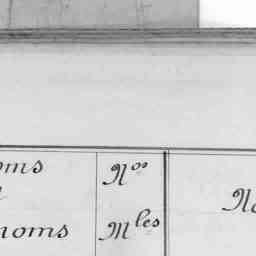 oms Nos
noms Mles
No